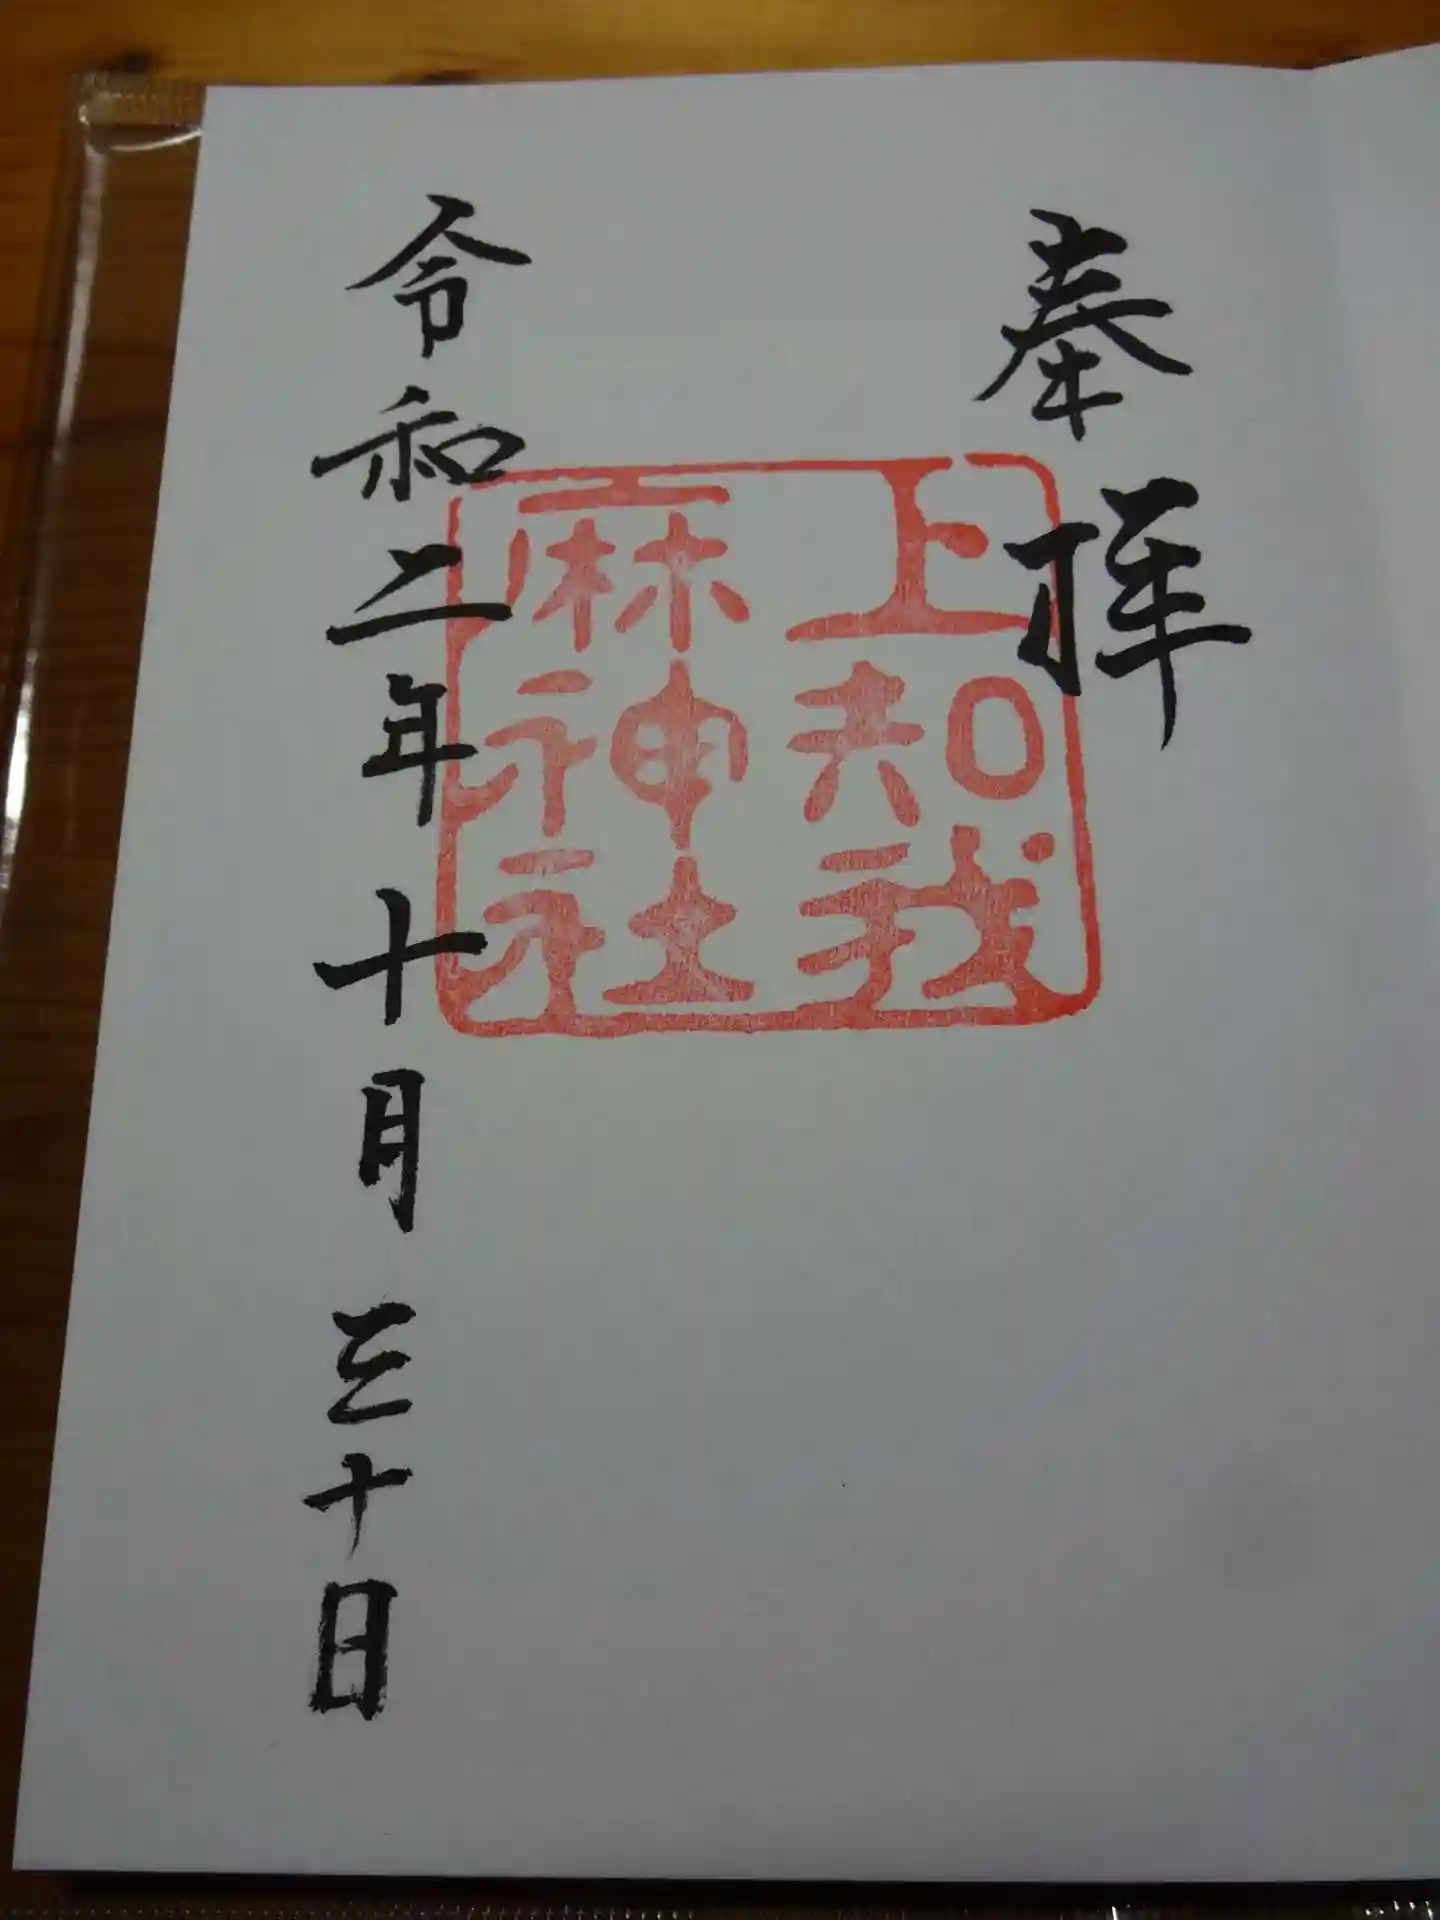 奉拝
上知我
麻神社
令和二年十月三十日